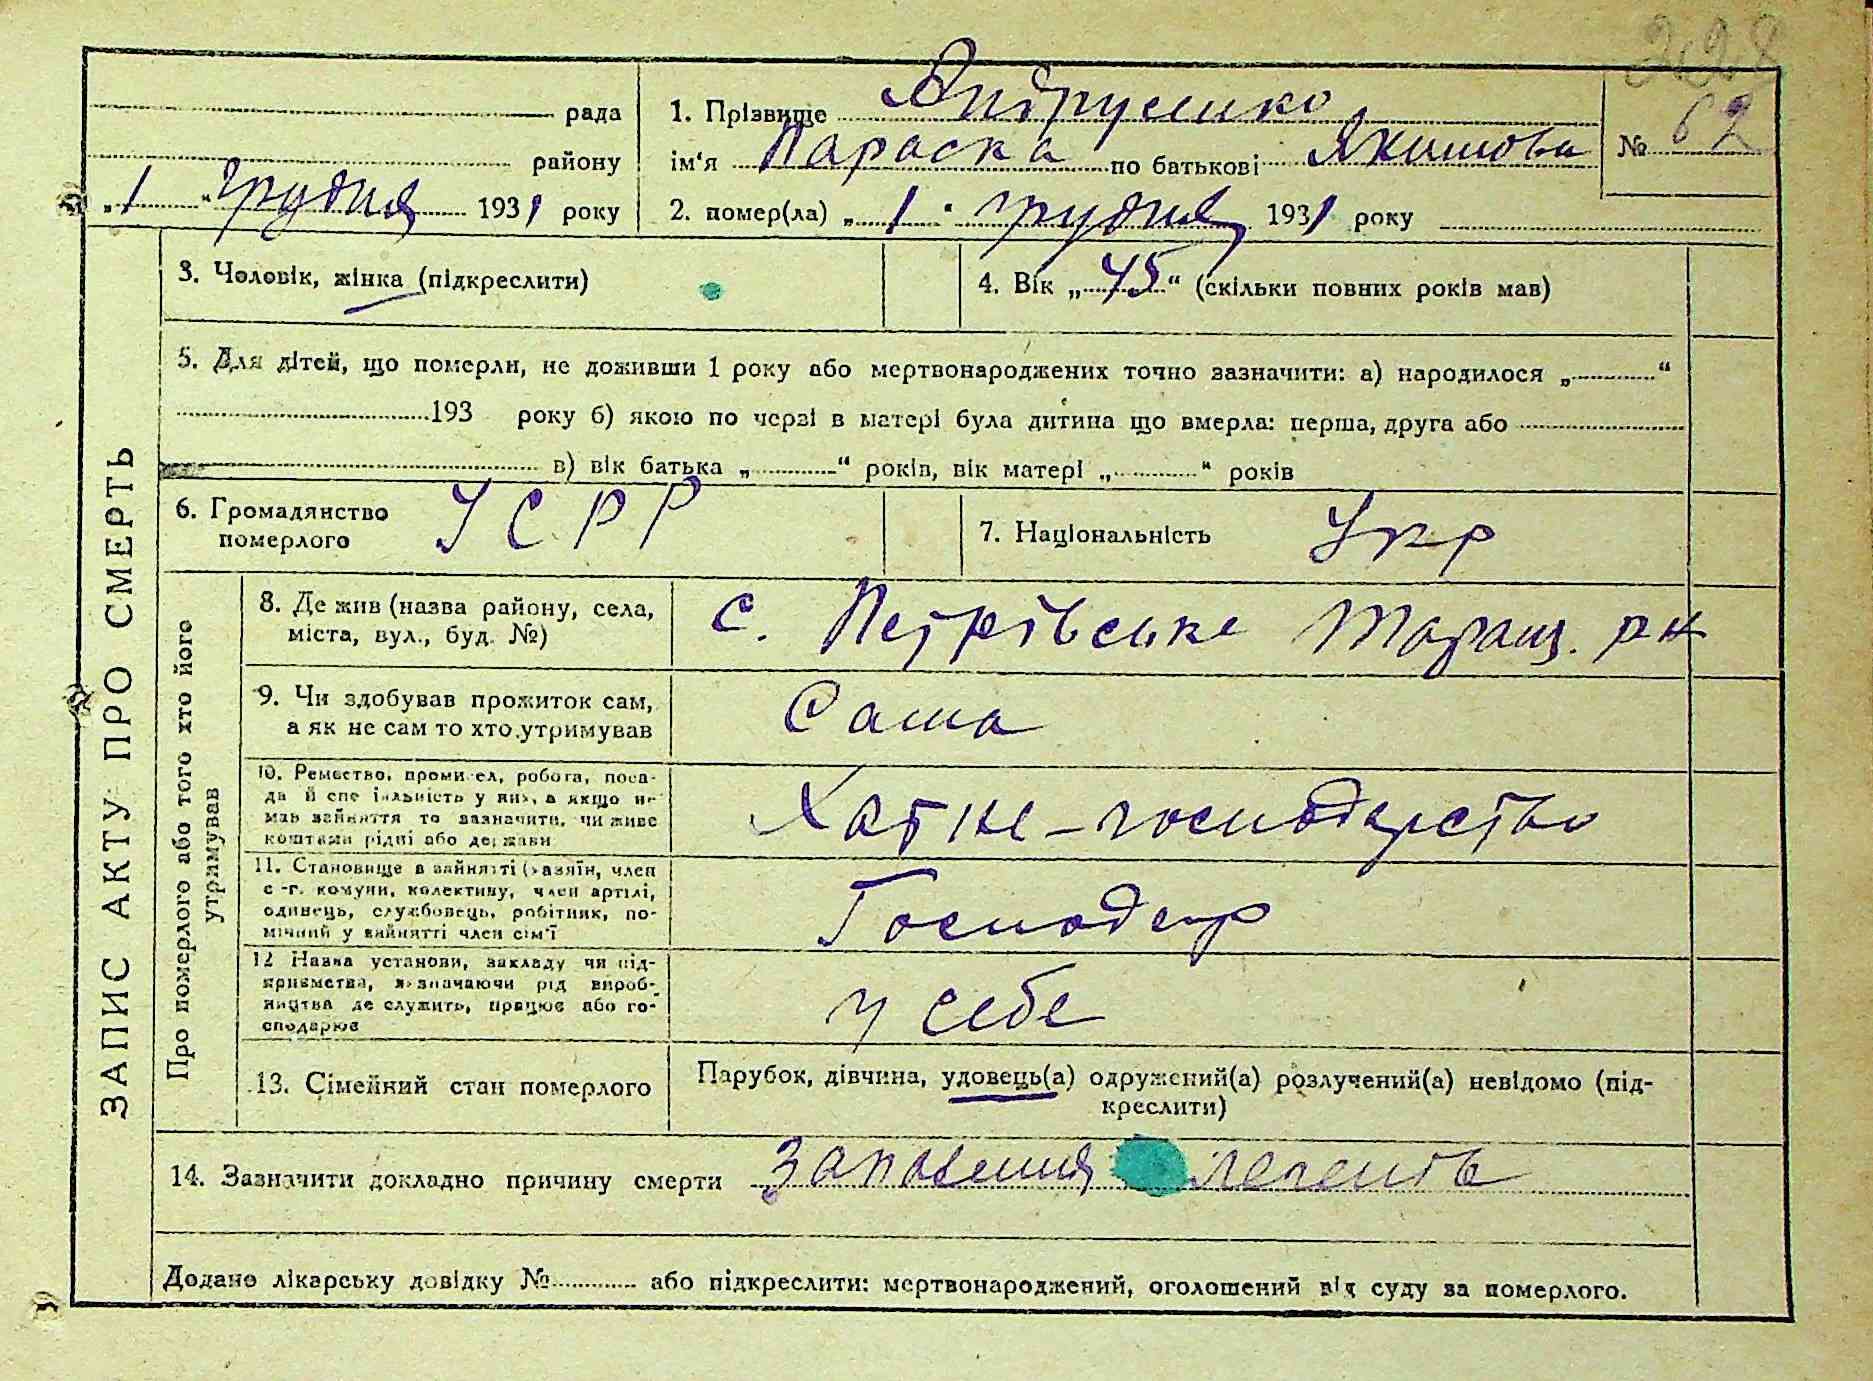 228
рада
району
„1“ грудня 1931 року
1. Прізвище Андрусенко
ім'я Параска по батькові Якимова
№ 62
2. помер(ла) „1“ грудня 1931 року
ЗАПИС АКТУ ПРО СМЕРТЬ
3. Чоловік, жінка (підкреслити)
4. Вік „45“ (скільки повних років мав)
5. Для дітей, що померли, не доживши 1 року або мертвонароджених точно зазначити: а) народилося „ “
193 року б) якою по черзі в матері була дитина що вмерла: перша, друга або
в) вік батька „ “ років, вік матері „ “ років
6. Громадянство
померлого
УСРР
7. Національність Укр
Про померлого або того хто його
утримував
8. Де жив (назва району, села,
міста, вул., буд. №)
с. Петрівське Таращ. р-н
9. Чи здобував прожиток сам,
а як не сам то хто утримував
Сама
10. Ремество, промисел, робота, поса-
да й спеціяльність у них, а якщо не
мав зайняття то зазначити, чи живе
коштами рідні або держави
Хатнє-господарство
11. Становище в зайнятті (хазяїн, член
с.-г. комуни, колективу, член артілі,
одинець, службовець, робітник, по-
мічний у зайнятті член сім'ї
Господар
12 Назва установи, закладу чи під-
приємства, зазначаючи рід вироб-
ництва де служить, працює або го-
сподарює
у себе
13. Сімейний стан померлого
Парубок, дівчина, удовець(а) одружений(а) розлучений(а) невідомо (під-
креслити)
14. Зазначити докладно причину смерти Запалення легенів
Додано лікарську довідку № або підкреслити: мертвонароджений, оголошений від суду за померлого.